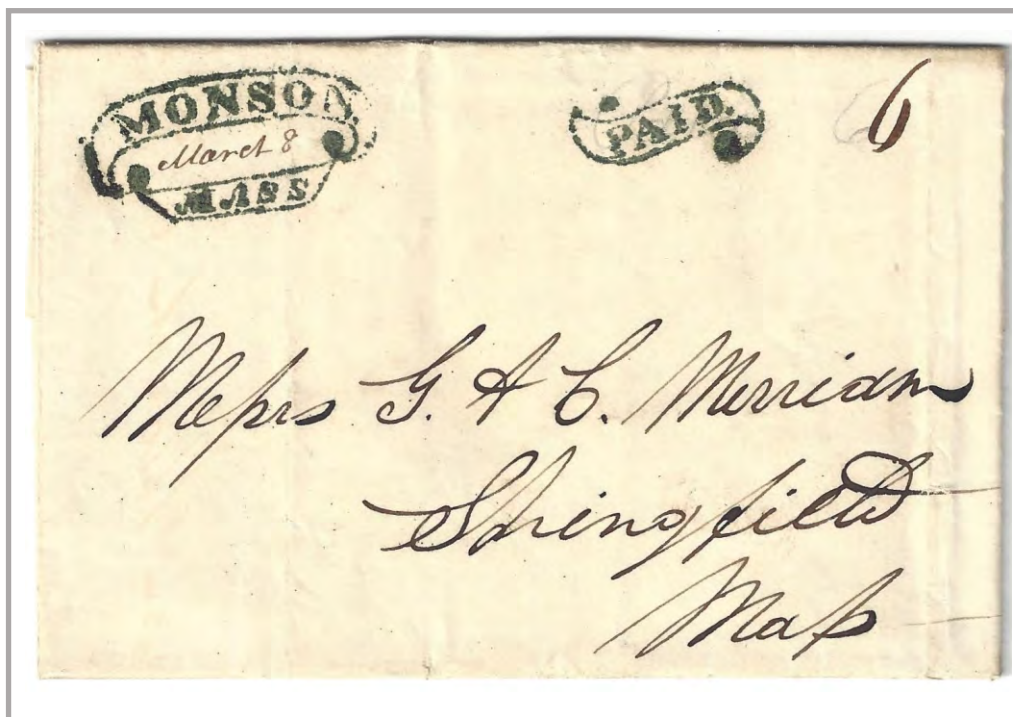 MONSON.
March 8
MASS
PAID.
6
Messrs G. & C. Merriam
Springfield
Mass